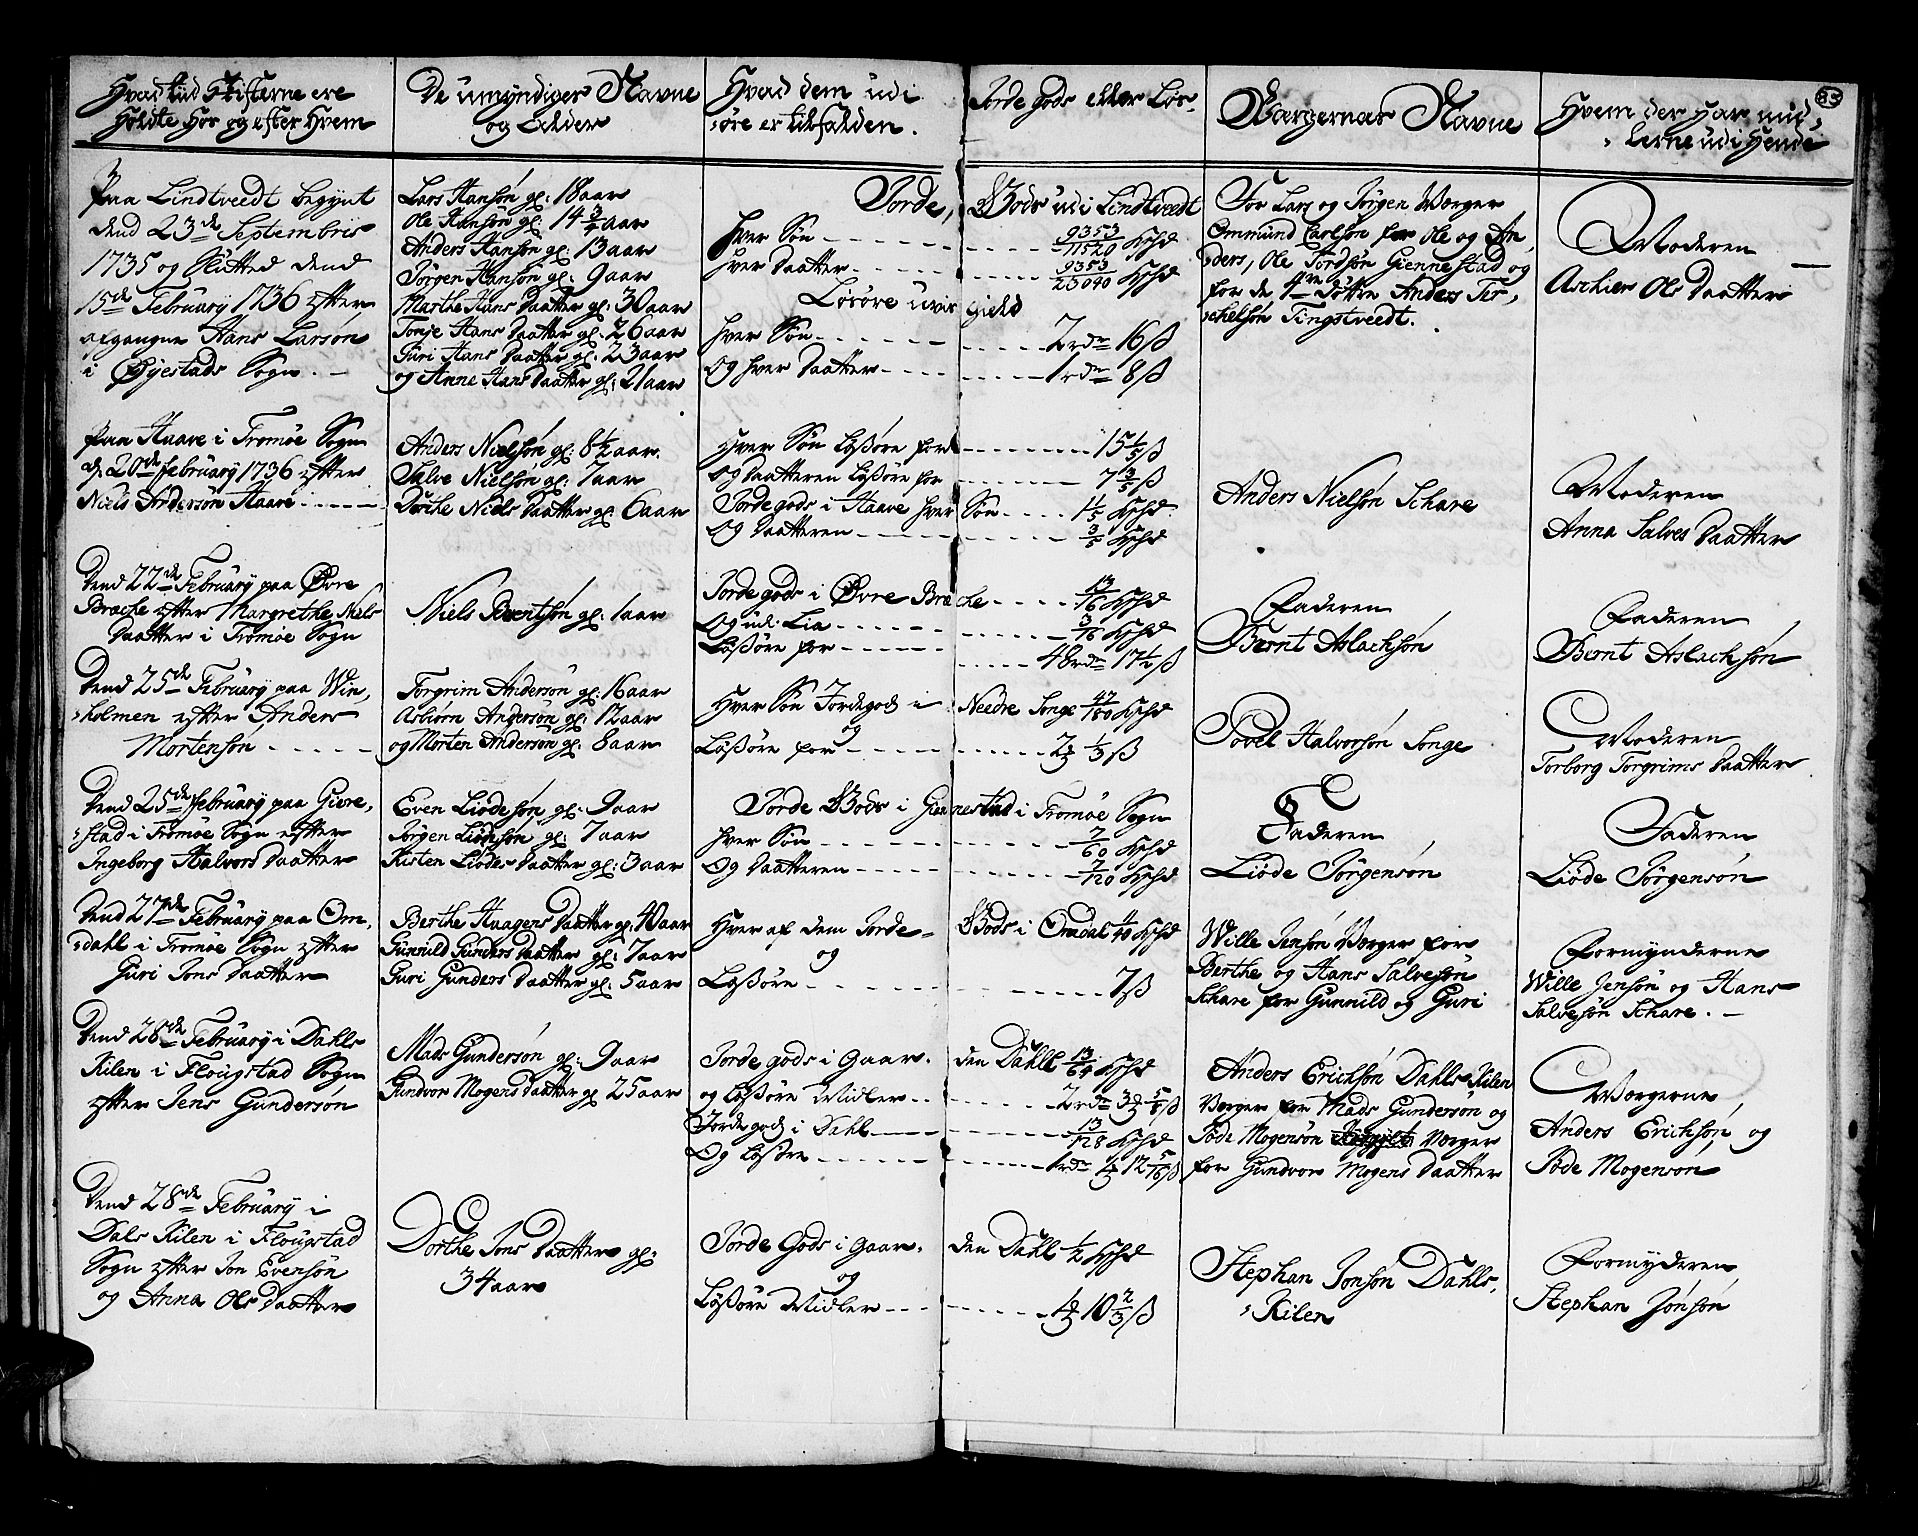 83
Hvad tiid Skifterne ere
Holdte Hos og efter Hvem
De umyndiges Navne
og Alder
Hvad dem udi Jorde gods eller Løs-
øre er tilfalden.
Værgernes Navne
Hvem der Har mid,
lerne udi Hende
Paa Lindtveedt begÿnt
dend 23de Septembris
1735 og Slutted dend
15de Februarÿ 1736 efter
afgangne Hans Larsøn
i Øÿestads Sogn.
Lars Hansøn gl: 18 aar
Ole Hansøn gl: 14 3/4 aar
Anders Hansøn gl: 13 aar
Jørgen Hansøn gl: 9 aar
Marthe Hans Daatter gl: 30 aar
Tonje Hans Daatter gl: 26 aar
Guri Hans Daatter gl: 23 aar
og Anne Hans Daatter gl: 21 aar
Jorde, Gods udi Lindtveedt
Hver Søn - - - 9353/11520 Hschd
Hver Daatter - - - 9353/23040 Hschd
Løsøre uvis gield
Hver Søn - - - 2 rdr 16 ß
Og hver Daatter - - - 1 rdr 8 ß
For Lars og Jørgen Værger
Emmund Carlsøn for Ole og An,
ders, Ole Tordsøn Giennestad og
for de 4re Døttre Anders Ter,
chelsøn Tingstveedt.
Moderen
Aschier Ols Daatter
Paa Haave i Tromøe Sogn
d. 20de Februarÿ 1736 efter
Niels Andersøn Haave
Anders Nielsøn gl: 8 1/2 aar.
Salve Nielsøn gl: 7 aar
Dorthe Niels Daatter gl: 6 aar
Hver Søn Løßøre for - - - 15 1/5 ß
Og Daatteren Løßøre for - - - 7 3/5 ß
Jordegods i Haave hver Søn - - - 1 1/5 Hschd
Og Daatteren - - - 3/5 Hschd
Anders Nielsøn Schare
Moderen
Anna Salves Daatter
Dend 22de Februarÿ paa Øvre
Bræche efter Margrethe Niels
Daatter i Tromøe Sogn
Niels Berntsøn gl: 1 aar
Jordegods i Øvre Bræche - - - 13/16 Hschd
Og udi Lia - - - 3/16 Hschd
Løßøre for - - - 48 rdr 17 1/2 ß
Faderen
Bernt Aslachsøn
Faderen
Bernt Aslachsøn
Dend 25de Februarÿ paa Win,
holmen efter Anders
Mortensøn
Torgrim Andersøn gl: 16 aar
Asbiørn Andersøn gl: 12 aar
og Morten Andersøn gl: 8 aar
Hver Søn Jordegods i Needre Songe 47/180 Hschd
og
Løßøre for - - - 2 1/3 ß
Povel Halvorsøn Songe
Moderen
Torborg Torgrims Daatter
Dend 25de Februarÿ paa Giere,
stad i Tromøe Sogn efter
Ingeborg Halvors Daatter
Even Liødesøn gl: 9 aar
Jørgen Liødesøn gl: 7 aar
Kisten Liødes Daatter gl: 3 aar
Jorde Gods i Giennestad i Tromøe Sogn
Hver Søn - - - 7/60 Hschd
Og Daatteren - - - 7/120 Hschd
Faderen
Liøde Jørgensøn
Faderen
Liøde Jørgensøn
Dend 27de Februarÿ paa Om,
dahl i Tromøe Sogn efter
Guri Jons Daatter
Berthe Haagens Daatter gl: 40 aar
Gunnild Gunders Daatter gl: 7 aar
Guri Gunders Daatter gl: 5 aar
Hver af dem Jorde- Gods i Omdal 1/40 Hschd
og
Løßøre - - - 7 ß
Wille Jensøn Værger for
Berthe og Hans Salvesøn
Schare for Gunnild og Guri
Formynderne
Wille Jensøn og Hans
Salvesøn Schare.
Dend 28de Februarÿ i Dahls
Kilen i Flougstad Sogn
efter Jens Gundersøn
Mads Gundersøn gl: 9 aar
Gundvor Mogens Daatter gl 25 aar
Jorde gods i Gaar, den Dahl 13/64 Hschd
og Løßøre Midler - - - 2 rdr 3 5/8 ß
Jordegods i Dahl - - - 13/128 Hschd
Og Løsøre - - - 1 rdr 12 5/16 ß
Anders Erichsøn Dahls Kilen
Værger for Mads Gundersøn og
Tøde Mogensøn Værger
for Gundvor Mogens Daatter
Værgerne,
Anders Erichsøn og
Tøde Mogensøn
Dend 28de Februarÿ i
Dals Kilen i Flougstad
Sogn efter Jon Evensøn
og Anna Ols Daatter
Dorthe Jons Daatter gl:
34 aar
Jorde Gods i Gaar, den Dahl 1/2 Hschd
og
Løßøre Midler - - - 10 2/3 ß
Stephan Jonsøn Dahls,
Kilen
Formyderen,
Stephan Jonsøn